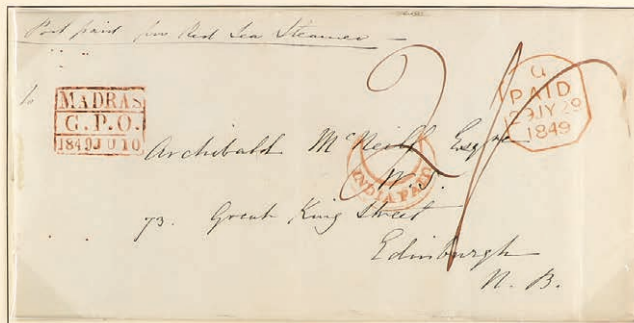 Post paid per Red Sea Steamer
To
MADRAS
G.P.O.
1849 JU 10
PAID
29 JY 29
1849
Archibald McNeill Esqre
W.S.
INDIA PAID
73. Great King Street
Edinburgh
N. B.